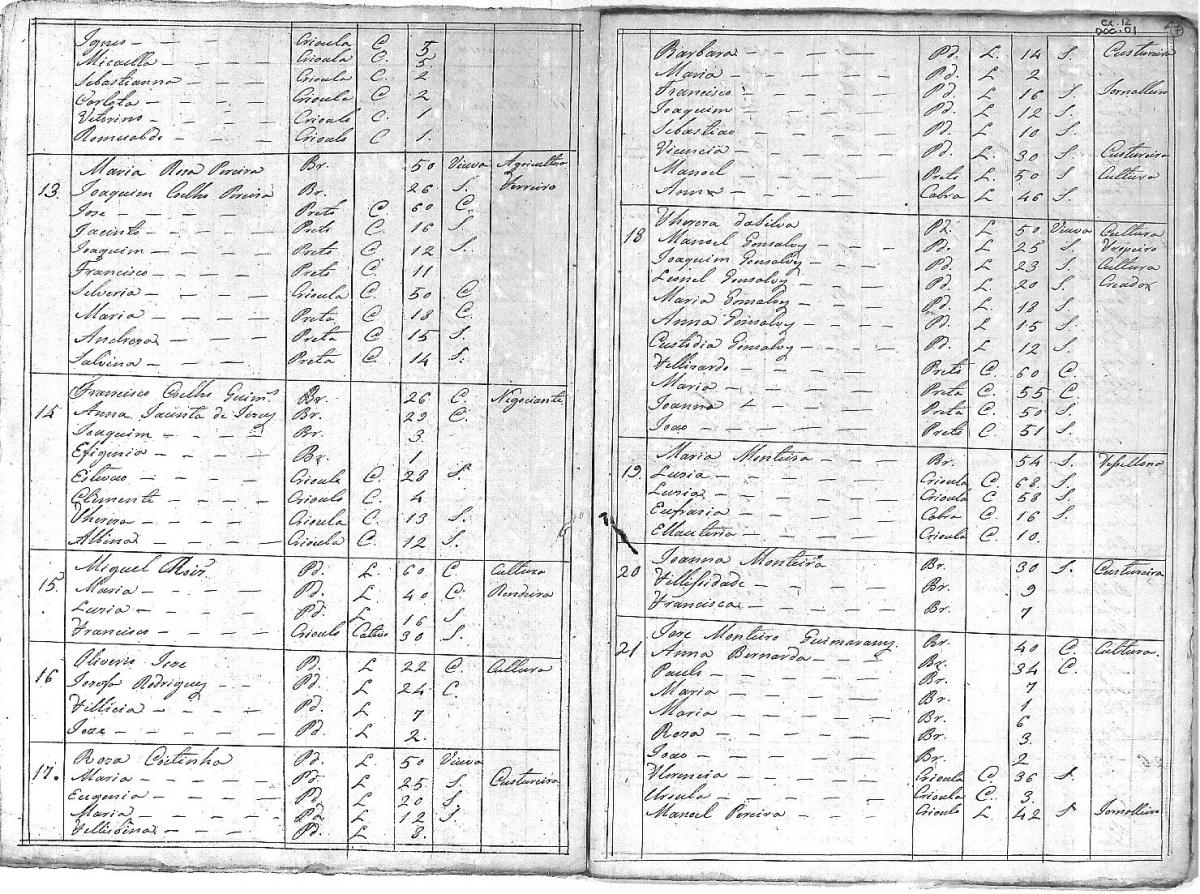 Ignes Crioula C 5
Micaella Crioula C. 5
Sebastianna Crioula C 2
Carlota Crioula C 2
Vitorino Crioulo C. 1
Romualdo Crioulo C 1.
Maria Rosa Pereira Br. 50 Viuva Agricultura
13. Joaquim Coelho Pereira Br. 26 S. Ferreiro
Jose Preto C 60 C
Jacinto Preto C 16 S.
Joaquim Preto C 12 S.
Francisco Preto C 11
Silveria Crioula C. 50 C
Maria Preta C 18 C.
Andreza Preta C 15 S.
Salvina Preta C 14 S.
Francisco Coelho Guim.s Br. 26 C. Negociante
14 Anna Jacinta de Br. 22 C.
Joaquim Br. 3.
Efigenia Br. 1.
Estevao Crioulo C. 28 S.
Clemente Crioulo C. 4
Thereza Crioula C. 13 S.
Albina Crioula C. 12 S.
Miguel Pd. L. 60 C Cultura
15. Maria Pd. L. 40 C. Rendeira
Luzia Pd. L 16 S.
Francisco Crioulo Cativo 30 S.
Oliverio Jose P. L 22 C. Cultura
16 Josefa Rodriguez Pd. L 24 C.
Fillicia Pd. L 7
Jose Pd. L 2.
Roza Coitinha Pd. L. 50 Viuva
17. Maria Pd. L 25 S. Custureira
Eugenia Pd. L 20 S
Maria Pd L 12 S
Pd. L 8.
CX. 12
DOC. 01
Barbara Pd. L. 14 S. Custureira
Maria Pd. L 2
Francisco Pd. L 16 S. Jornalleiro
Joaquim Pd. L 12 S.
Sebastiao Pd. L 10 S.
Vicencia Pd. L. 30 S. Custureira
Manoel Preto L 50 S. Cultura
Anna Cabra L 46 S.
Thereza da Silva Pd. L 50 Viuva Cultura
18 Manoel Gonsalvz Pd. L 25 S. Vaqueiro
Joaquim Gonsalvz Pd. L 23 S. Cultura
Leonel Gonsalvz Pd. L 20 S. Creador
Maria Gonsalvz Pd. L. 18 S.
Anna Gonsalvz Pd. L 15 S.
Custodia Gonsalvz Pd. L 12 S.
Preto C. 60 C.
Maria Preta C. 55 C.
Joanna Preta C. 50 S.
Joao Preto C. 51 S.
Maria Monteira Br. 54 S.
19. Luzia Crioula C. 68 S.
Luzia Crioula C 58 S.
Eufrasia Cabra C. 16 S.
Crioula C. 10.
Joanna Monteira Br. 30 S. Custureira
20 Br. 9
Francisca Br. 7
Jose Monteiro Guimaraens Br. 40 C. Cultura.
21 Anna Bernarda Br. 34 C.
Paulo Br. 7
Maria Br. 1
Maria Br. 6
Roza Br. 3.
Joao Br. 2
Florencia Crioula C. 36 S.
Ursula Crioula C. 3.
Manoel Pereira Crioulo L 42 S Jornalleiro